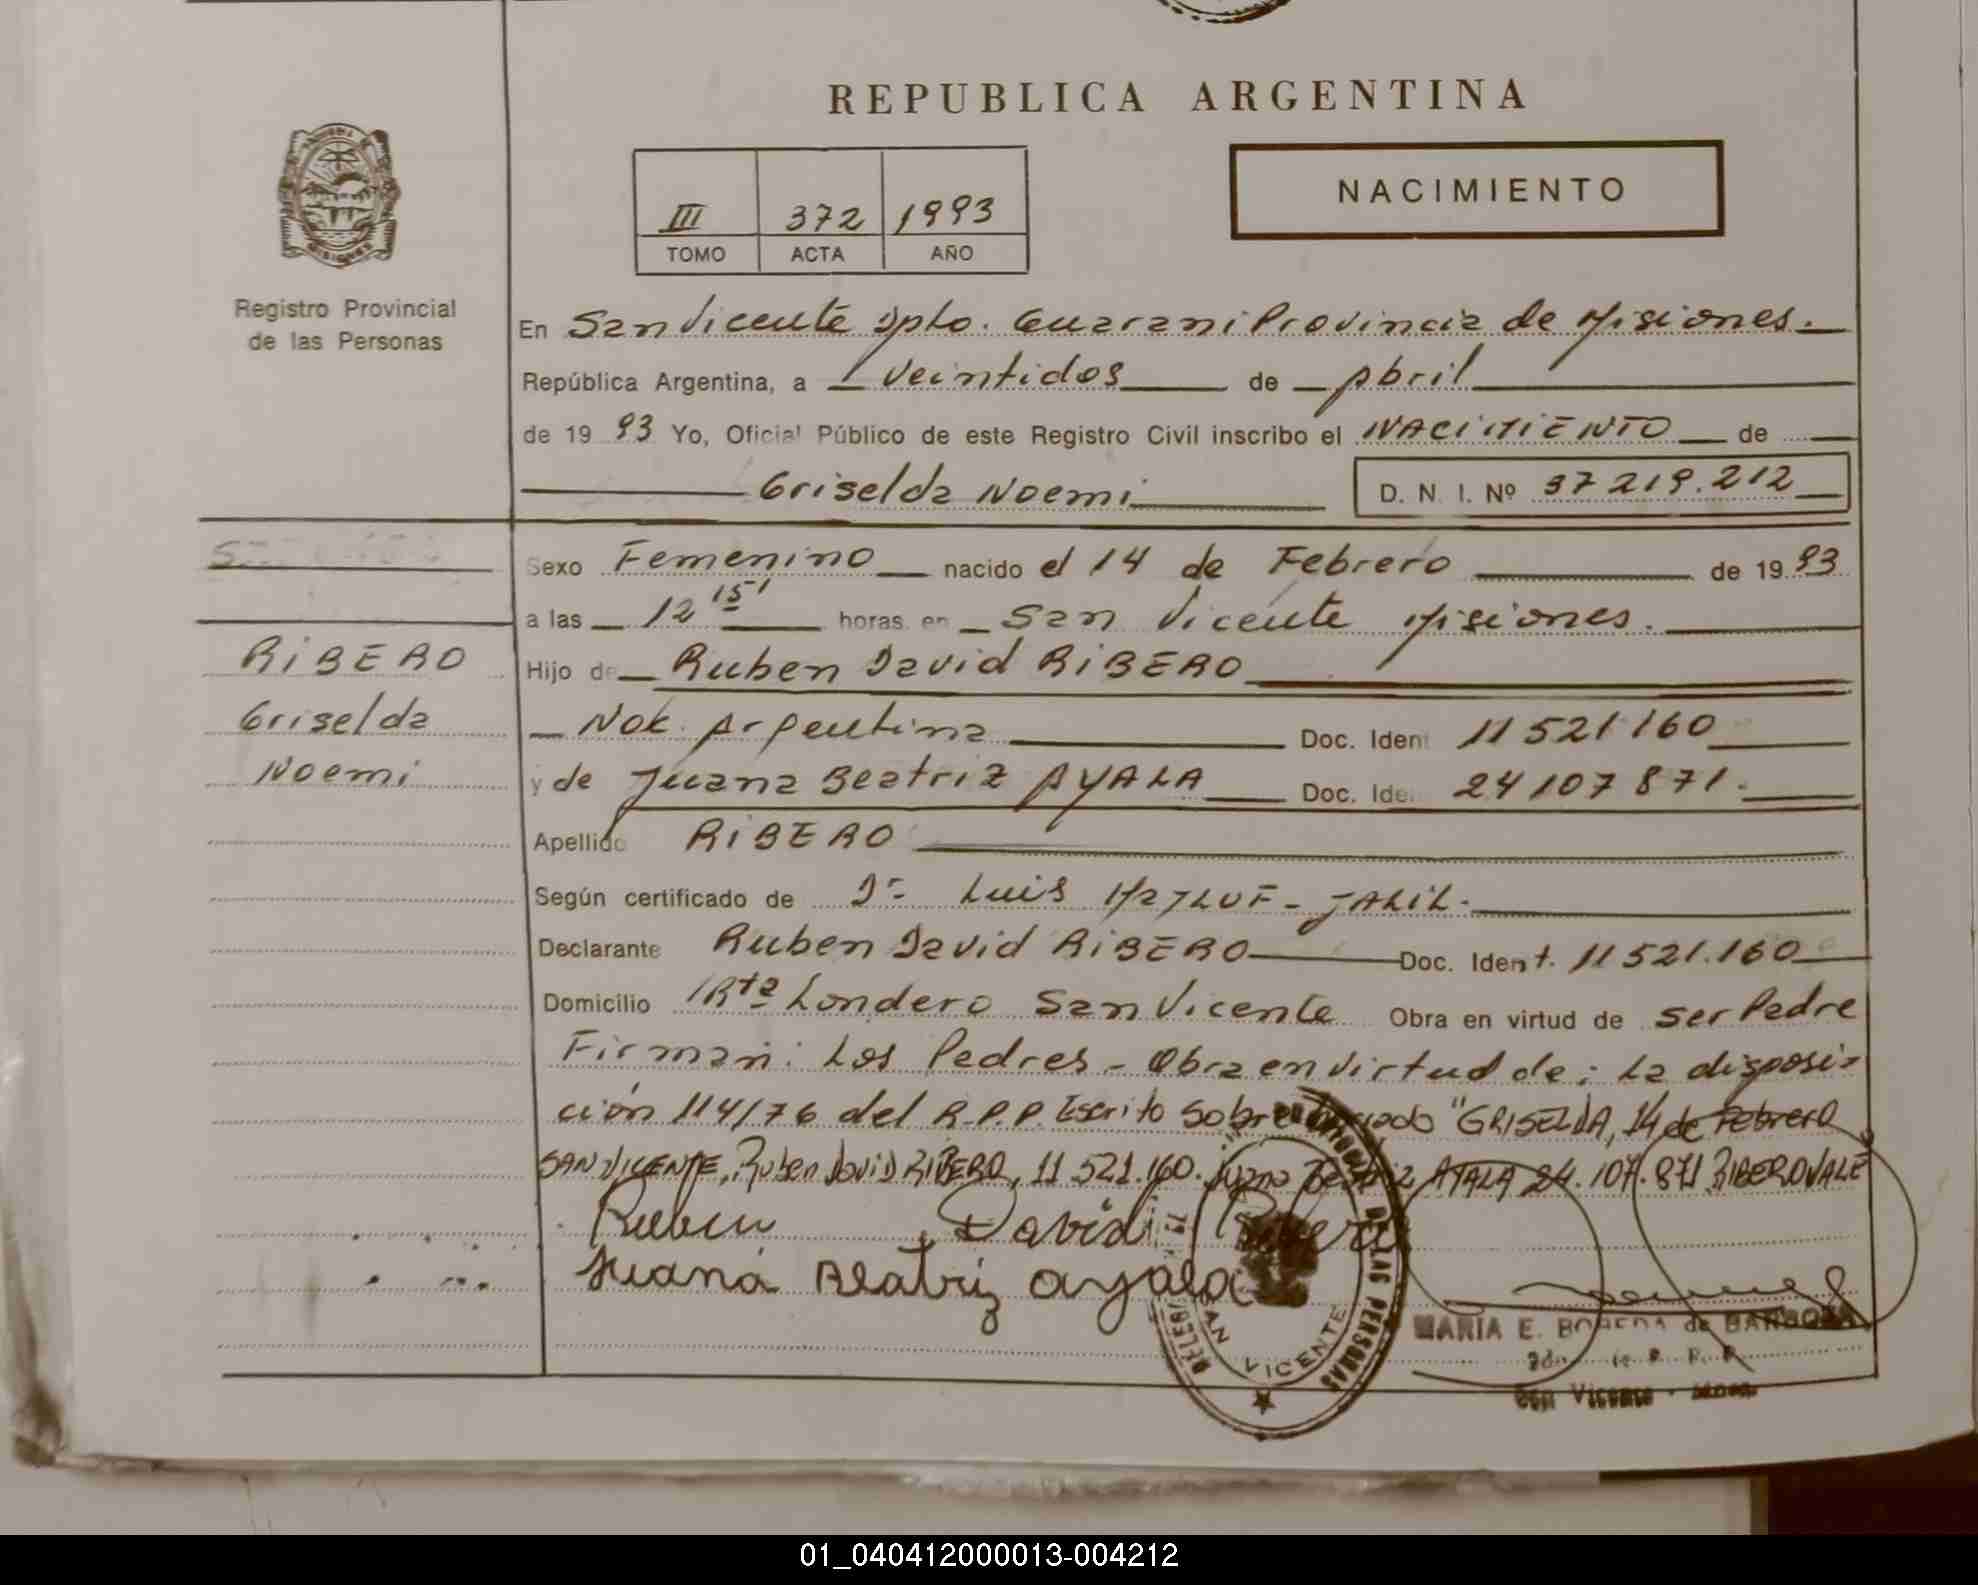 REPUBLICA ARGENTINA
NACIMIENTO
III 372 1993
TOMO ACTA AÑO
Registro Provincial
de las Personas
En San Vicente Dpto. Guarani Provincia de Misiones.
República Argentina, a Veintidos de Abril
de 1993 Yo, Oficial Público de este Registro Civil inscribo el NACIMIENTO de
Griselda Noemi D. N. I. Nº 37 219.212
Sexo Femenino nacido el 14 de Febrero de 1993
a las 12 15' horas en San Vicente Misiones.
RIBERO
Hijo de Ruben David RIBERO
Griselda
Nac. Argentina Doc. Ident 11 521 160
Noemi
y de Juana Beatriz AYALA Doc. Ide. 24 107 871.
Apellido RIBERO
Según certificado de Dr Luis JALIL.
Declarante Ruben David RIBERO Doc. Ident. 11 521.160
Domicilio Rta Londero San Vicente Obra en virtud de ser Padre
Firman: Los Padres - Obra en virtud de: La disposi-
ción 114/76 del R.P.P. Escrito sobre "GRISELDA, 14 de Febrero
SAN VICENTE, Ruben David RIBERO, 11.521.160. Juana Beatriz AYALA 24.107.871 RIBERO VALE
Ruben David Ribero
Juana Beatriz ayala
DE LAS PERSONAS
SAN VICENTE
MARIA E. de BARBOZA
San Vicente - Mnes.
01_040412000013-004212